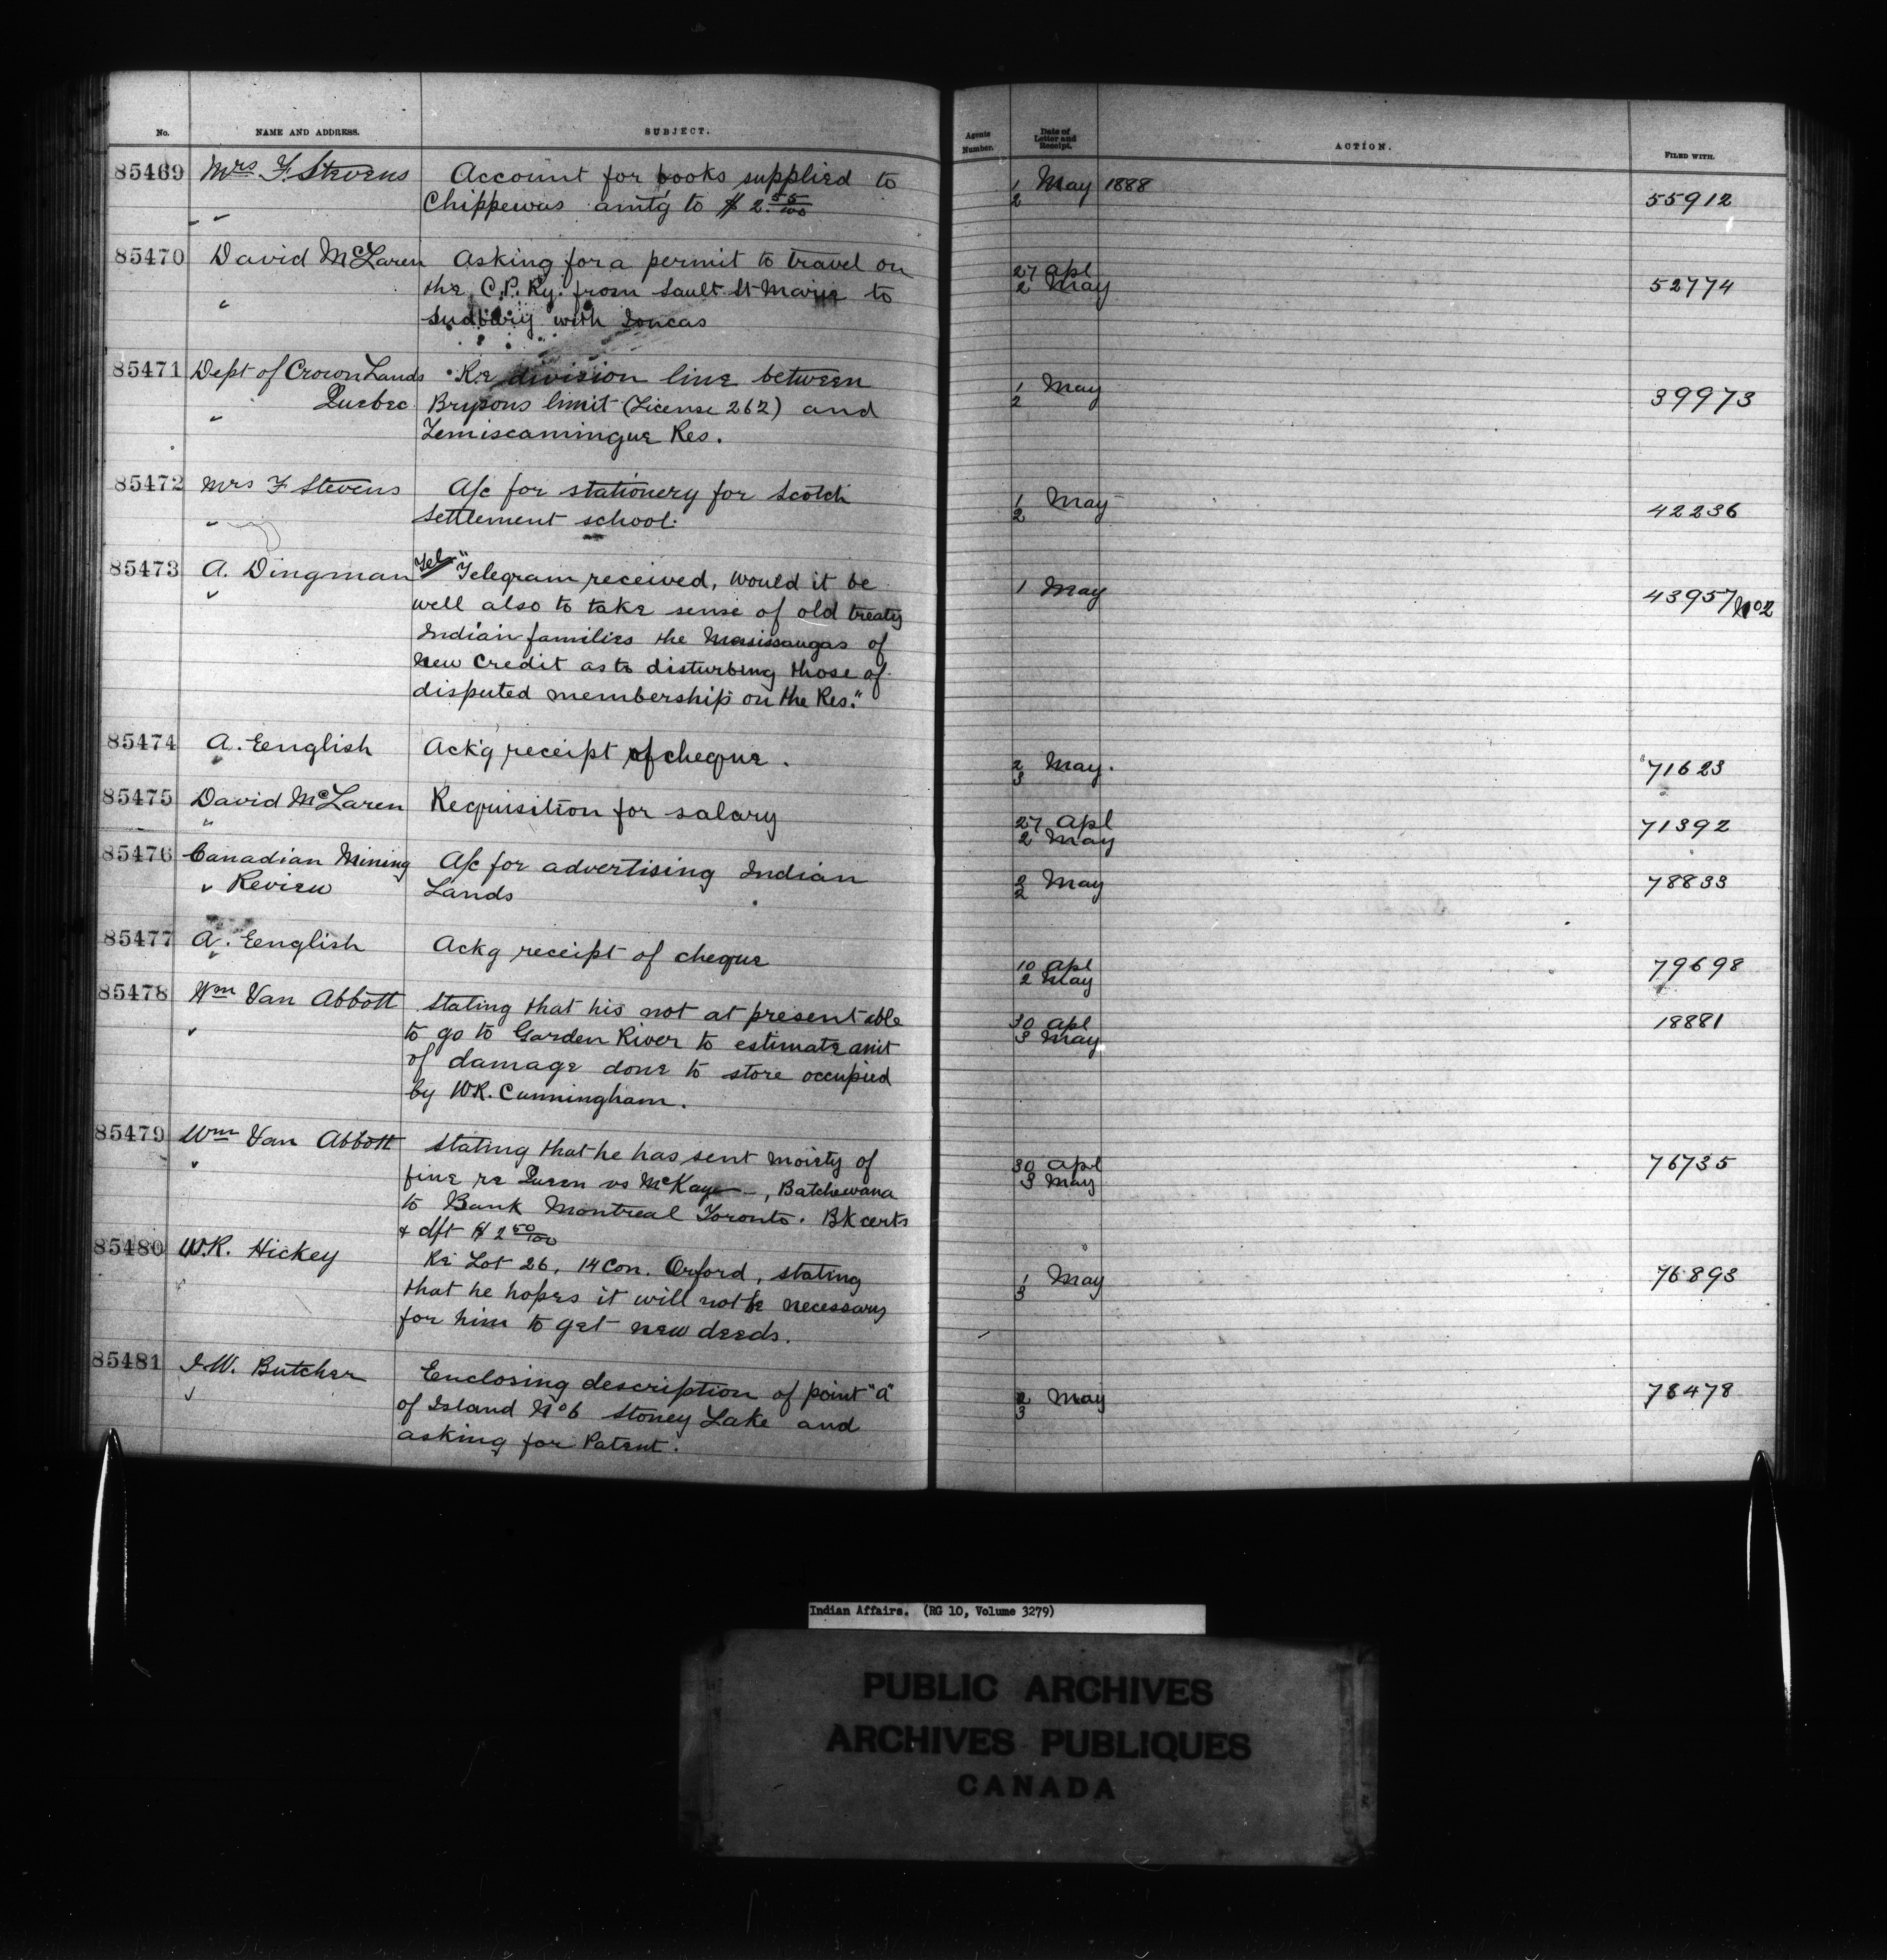 No. NAME AND ADDRESS. SUBJECT. Agents Number. Date of Letter and Receipt. ACTION. FILED WITH.
85469 Mrs F. Stevens Account for books supplied to 1 May 1888 55912
" Chippewas amtg to $ 2.55/100 2
85470 David McLaren Asking for a permit to travel on 27 Apl 52774
" the C.P. Ry. from Sault St Marie to 2 May
Sudbury with Loucas
85471 Dept of Crown Lands Re division line between 1 May 39973
" Quebec Brysons limit (License 262) and 2
Temiscamingue Res.
85472 Mrs F Stevens A/c for stationery for Scotch 1 May 42236
" Settlement school. 2
85473 A. Dingman Tel "Telegram received, would it be 1 May 43957 No 2
" well also to take sense of old treaty
Indian families the Mississaugas of
New Credit as to disturbing those of
disputed membership on the Res."
85474 A. English Ack'g receipt of cheque. 2 May. 71623
" 3
85475 David McLaren Requisition for salary 27 Apl 71392
" 2 May
85476 Canadian Mining A/c for advertising Indian 2 May 78833
" Review Lands 2
85477 A. English Ackg receipt of cheque 10 Apl 79698
" 2 May
85478 Wm Van Abbott Stating that his not at present able 30 Apl 18881
" to go to Garden River to estimate amt 3 May
of damage done to store occupied
by WR. Cunningham.
85479 Wm Van Abbott Stating that he has sent moiety of 30 Apl 76735
" fine re Queen vs McKay, Batchewana 3 May
to Bank Montreal Toronto. Bk certs
& dft $ 2 50/100
85480 W.R. Hickey Re Lot 26, 14 Con. Orford, stating 1 May 76893
that he hopes it will not be necessary 3
for him to get new deeds.
85481 I.W. Butcher Enclosing description of point "A" 2 May 78478
" of Island No 6 Stoney Lake and 3
asking for Patent.
Indian Affairs. (RG 10, Volume 3279)
PUBLIC ARCHIVES
ARCHIVES PUBLIQUES
CANADA